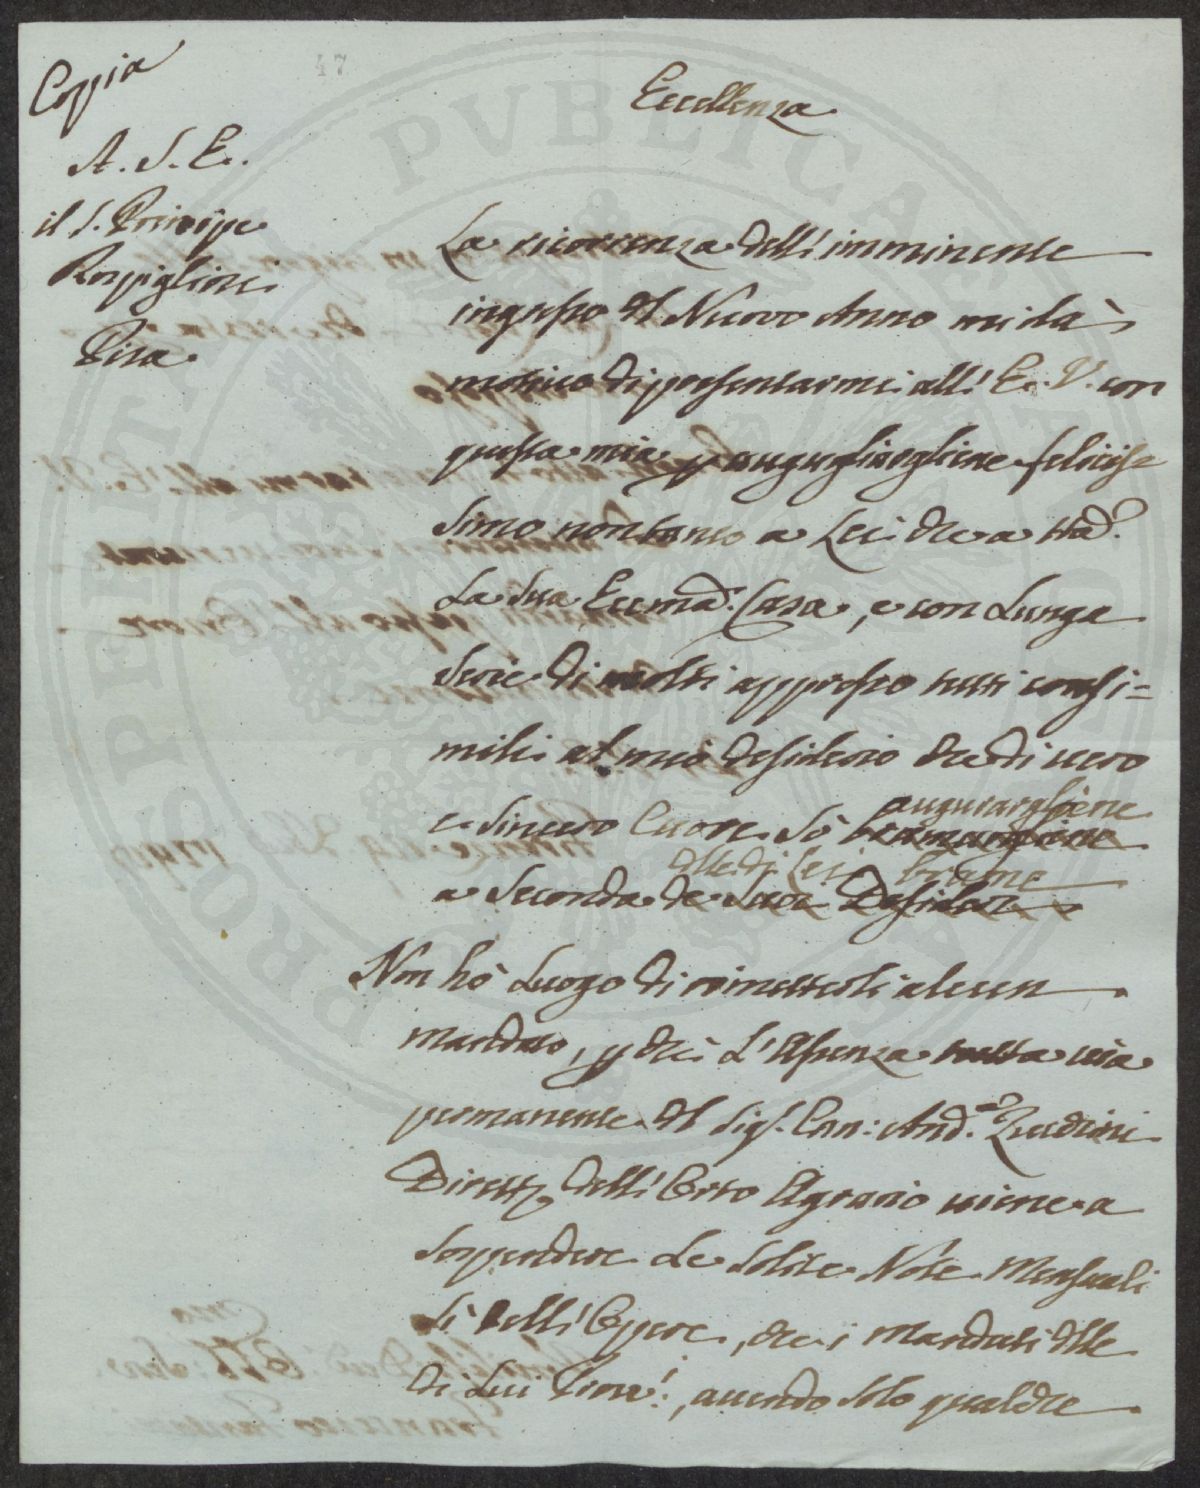 Coppia
47
A. S. E.
il S. Principe
Rospigliosi
Pisa
Eccellenza
La ricorrenza dell'imminente
ingresso del Nuovo Anno mi dà
motivo di presentarmi all'E. V. con
questa mia p augurargliene felicis=
simo non tanto a Lei che a tta.
La Sua Eccma. Casa, e con Lunga
Serie di molti appresso tutti consi=
mili al mio desiderio che di vero
e sincero Cuore Sò bramargliene
augurargliene
a Seconda de Suoi Desiderj
delle di Lei brame
Non hò Luogo di rimetterli alcun
mandato, p che L'Assenza tutta via
permanente del Sigr. Can: And.a Zucchini
Dirett.e dell'Orto Agrario viene a
Sospendere Le Solite Note Mensuali
Sì dell'Opere, che i Mandati delle
di Lui Provi., avendo Solo qualche
PVBLICAE
PROSPERITATI